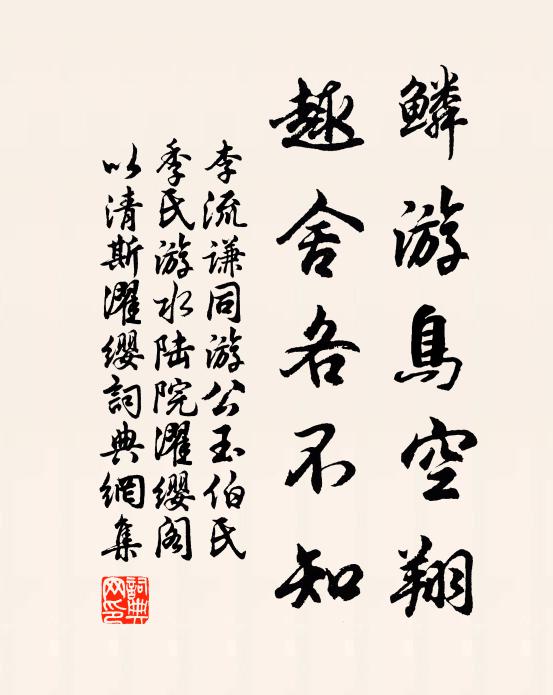 鳞游鳥空翔
趣舍各不知
李流谦同游公玉伯氏
季氏游水陆院濯缨阁
以清斯濯缨詞典網集
詞典網印